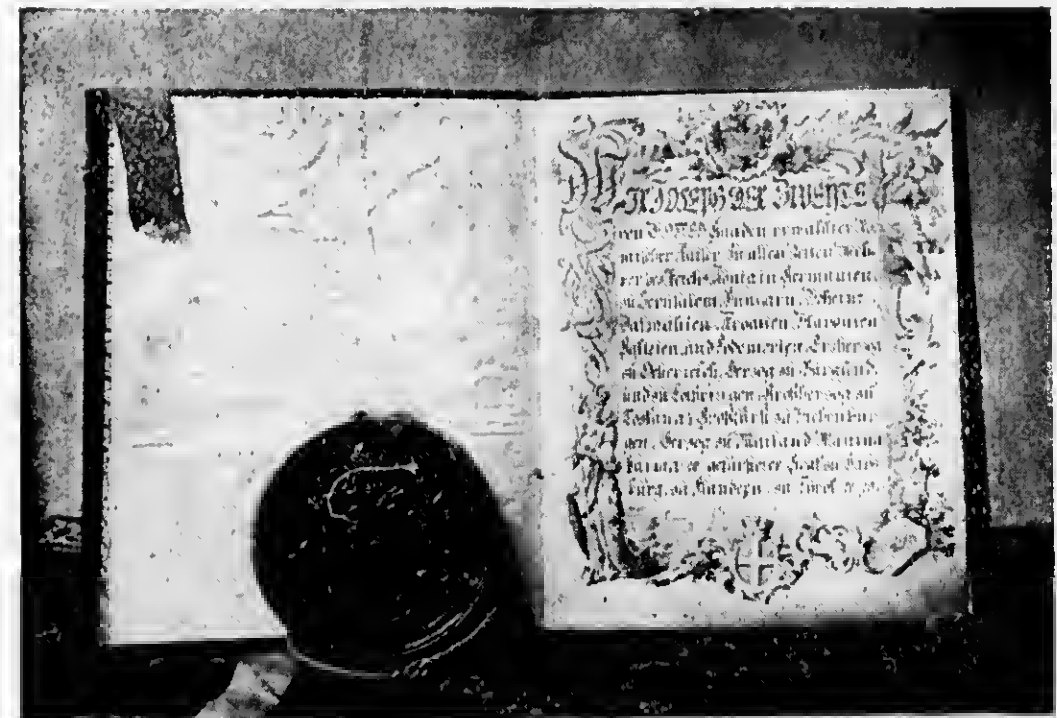 WIR JOSEPH DER ZWEYTE
von GOTTES Gnaden erwählter Rö-
mischer Kaiser zu allen Zeiten Meh-
rer des Reichs König in Germanien
zu Jerusalem Hungarn Böheim
Dalmatien Kroatien Slavonien
Galizien und Lodomerien Erzherzog
zu Österreich Herzog zu Burgund
und zu Lothringen Großherzog zu
Toskana Großfürst zu Siebenbür-
gen Herzog zu Mailand Mantua
Parma gefürsteter Graf zu Habs-
burg zu Flandern zu Tirol